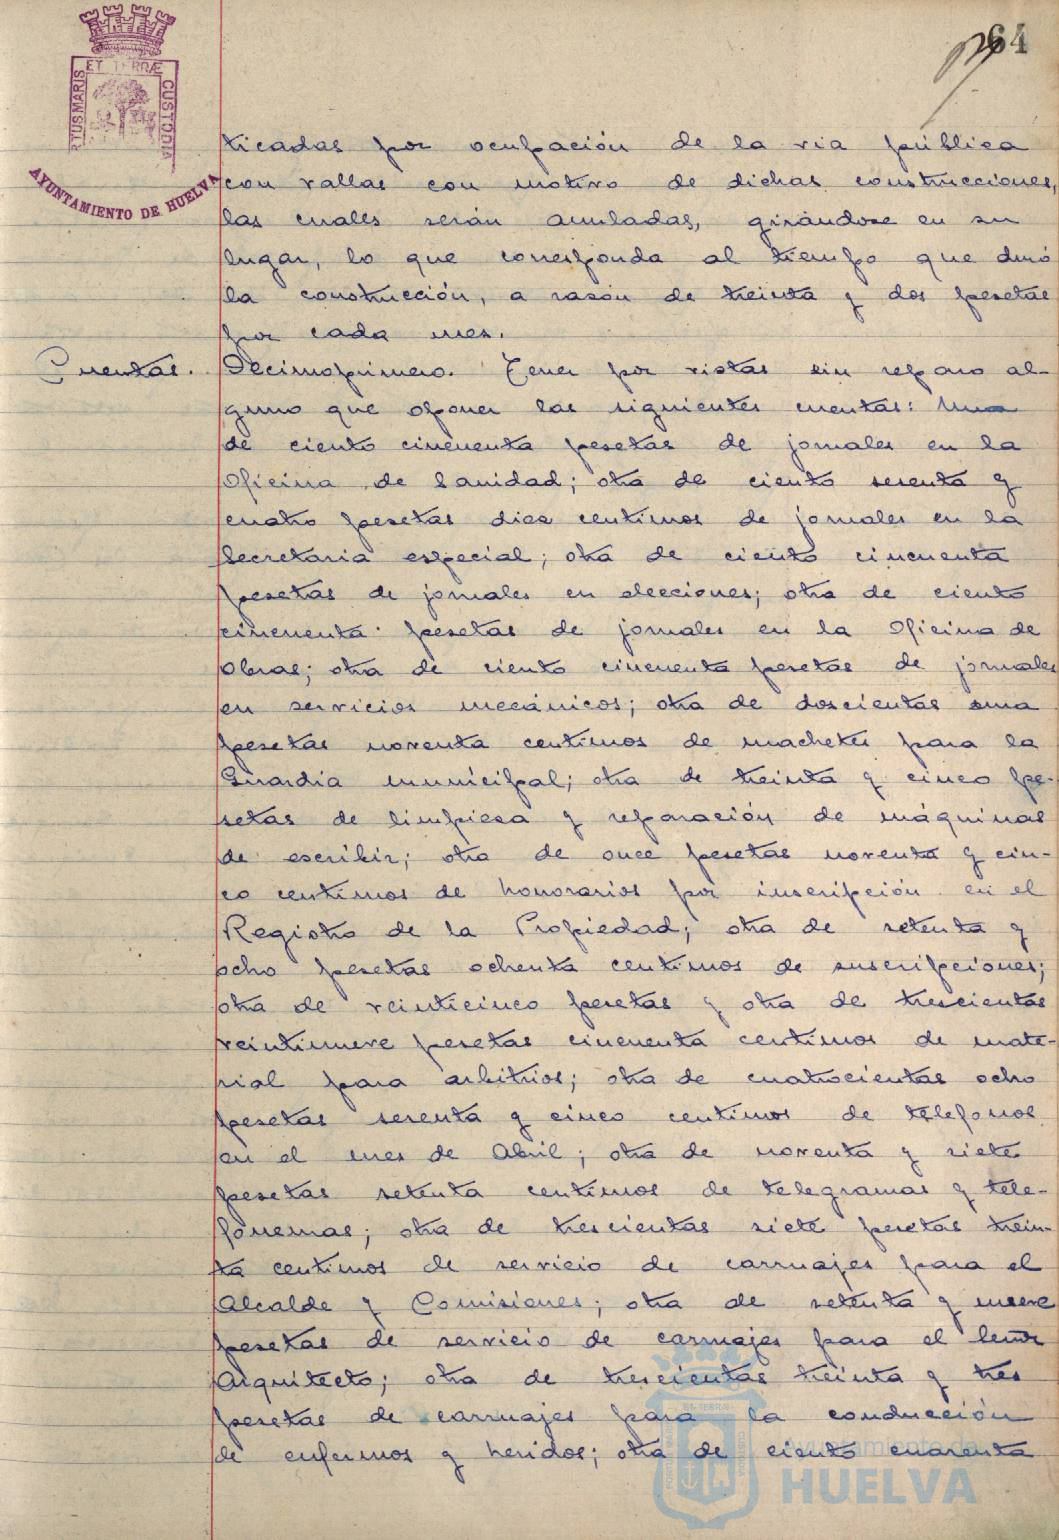 64
ET TERRÆ
RTUS MARIS
CUSTODIA
AYUNTAMIENTO DE HUELVA
ticadas por ocupación de la via pública
con vallas con motivo de dichas construcciones,
las cuales serán anuladas, girándose en su
lugar, lo que corresponda al tiempo que duró
la construcción, a razón de treinta y dos pesetas
por cada mes.
Cuentas. Decimoprimero. Tener por vistas sin reparo al-
guno que oponer las siguientes cuentas: Una
de ciento cincuenta pesetas de jornales en la
Oficina de Sanidad; otra de ciento sesenta y
cuatro pesetas diez centimos de jornales en la
Secretaria especial; otra de ciento cincuenta
pesetas de jornales en elecciones; otra de ciento
cincuenta pesetas de jornales en la Oficina de
Obras; otra de ciento cincuenta pesetas de jornales
en servicios mecánicos; otra de doscientas una
pesetas noventa centimos de machetes para la
Guardia municipal; otra de treinta y cinco pe-
setas de limpieza y reparación de máquinas
de escribir; otra de once pesetas noventa y cin-
co centimos de honorarios por inscripción en el
Registro de la Propiedad; otra de setenta y
ocho pesetas ochenta centimos de suscripciones;
otra de veinticinco pesetas y otra de trescientas
veintinueve pesetas cincuenta centimos de mate-
rial para arbitrios; otra de cuatrocientas ocho
pesetas sesenta y cinco centimos de telefonos
en el mes de Abril; otra de noventa y siete
pesetas setenta centimos de telegramas y tele-
fonemas; otra de trescientas siete pesetas trein-
ta centimos de servicio de carruajes para el
Alcalde y Comisiones; otra de setenta y nueve
pesetas de servicio de carruajes para el Señor
Arquitecto; otra de trescientas treinta y tres
pesetas de carruajes para la conducción
de enfermos y heridos; otra de ciento cuarenta
Ayuntamiento de
HUELVA